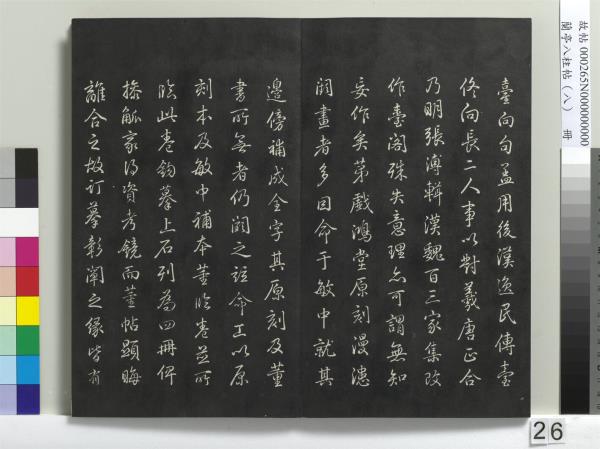 臺向句孟用後漢逸民傳臺
佟向長二人事以對羲唐正合
乃明張溥輯漢魏百三家集改
作臺閣殊失意理亦可謂無知
妄作矣第戲鴻堂原刻漫漶
闕畫者多因命于敏中就其
邊傍補成全字其原刻及董
書所無者仍闕之玆命工以原
刻本及敏中補本董臨卷並所
臨此卷鈎摹上石列為四冊俾
操觚家得資考鏡而董帖顯晦
離合之故訂摹彰闡之緣皆有
故帖 000265N000000000
蘭亭八柱帖（八） 冊
26